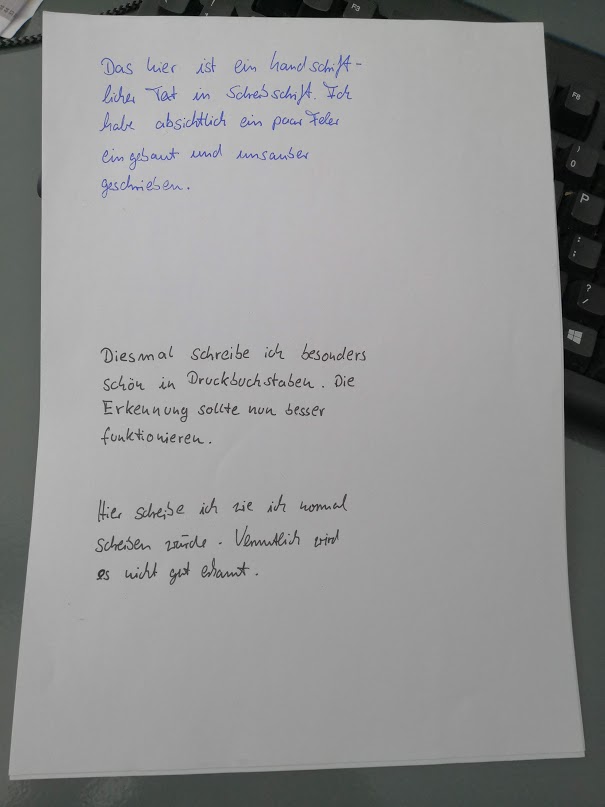 Das hier ist ein handschrift-
licher Text in Schreibschrift. Ich
habe absichtlich ein paar Feler
eingebaut und unsauber
geschrieben.
Diesmal schreibe ich besonders
schön in Druckbuchstaben. Die
Erkennung sollte nun besser
funktionieren.
Hier schreibe ich wie ich normal
schreiben würde. Vermutlich wird
es nicht gut erkannt.
F8
)
0
P
:
;
?
/